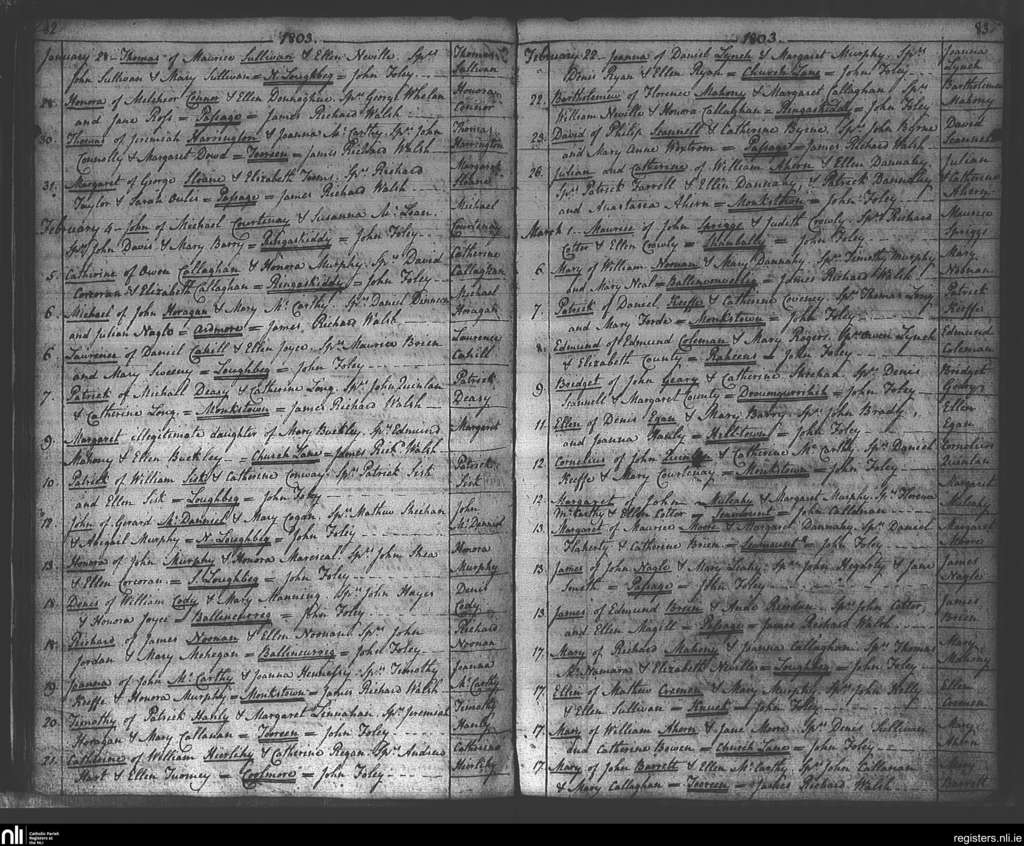 82
1803.
January 28 - Thomas of Maurice Sullivan & Ellen Neville. Sprs
John Sullivan & Mary Sullivan = N. Loughbeg = John Foley
Thomas
Sullivan
28. Honora of Melchior Connor & Ellen Donnoghue. Sprs George Whelan
and Jane Ross = Passage = James Richard Walsh
Honora
Connor
30. Thomas of Jeremiah Harrington & Joanna Mc Carthy. Sprs John
Connolly & Margaret Dowd = Tooreen = James Richard Walsh
Thomas
Harrington
31. Margaret of George Sloane & Elizabeth Sprs Richard
Taylor & Sarah = Passage = James Richard Walsh
Margaret
Sloane
February 4 - John of Michael Courtenay & Susanna Mc Lean.
Sprs John Davis & Mary Barry = Ringaskiddy = John Foley
Michael
Courtenay
5. Catherine of Owen Callaghan & Honora Murphy. Sprs David
Corcoran & Elizabeth Callaghan = Ringaskiddy = John Foley
Catherine
Callaghan
6. Michael of John Horagan & Mary Mc Carthy. Sprs Daniel
and Julian Nagle = Ardmore = James Richard Walsh
Michael
Horagan
6. Laurence of Daniel Cahill & Ellen Joyce. Sprs Maurice Brien
and Mary Sweeny = Loughbeg = John Foley
Laurence
Cahill
7. Patrick of Michael Deasy & Catherine Long. Sprs John Quinlan
& Catherine Long. = Monkstown = James Richard Walsh
Patrick
Deasy
9. Margaret illegitimate daughter of Mary Buckley. Sprs Edmund
Mahony & Ellen Buckley = Church Lane = James Richd Walsh
Margaret
10. Patrick of William Sisk & Catherine Conway. Sprs Patrick Sisk
and Ellen Sisk = Loughbeg = John Foley
Patrick
Sisk
12. John of Gerard Mc Daniel & Mary Cogan. Sprs Mathew Sheehan
& Abigail Murphy = N. Loughbeg = John Foley
John
Mc Daniel
13. Honora of John Murphy & Honora Sprs John Shea
& Ellen Corcoran = S. Loughbeg = John Foley
Honora
Murphy
18. Denis of William Cody & Mary Manning. Sprs John Hayes
& Honora Joyce = Ballencurreg = John Foley
Denis
Cody
18. Richard of James Noonan & Ellen Noonan. Sprs John
Jordan & Mary Mehegan = Ballencurreg = John Foley
Richard
Noonan
19. Joanna of John Mc Carthy & Joanna Hennessy. Sprs Timothy
Keeffe & Honora Murphy = Monkstown = James Richard Walsh
Joanna
Mc Carthy
20. Timothy of Patrick Hanly & Margaret Linnahan. Sprs Jeremiah
Horagan & Mary Callanan = Tooreen = John Foley
Timothy
Hanly
21. Catherine of William Hurlihy & Catherine Regan. Sprs Andrew
Hart & Ellen Turney = Coolmore = John Foley
Catherine
Hurlihy
83
1803.
February 22. Joanna of Daniel Lynch & Margaret Murphy. Sprs
Denis Ryan & Ellen Ryan = Church Lane = John Foley
Joanna
Lynch
22. Bartholemew of Florence Mahony & Margaret Callaghan. Sprs
William Neville & Honora Callaghan = Ringaskiddy = John Foley
Bartholemew
Mahony
23. David of Philip Scannell & Catherine Byrne. Sprs John Byrne
and Mary Anne = Passage = James Richard Walsh
David
Scannell
26. Julian and Catherine of William Ahern & Ellen Dannahy.
Sprs Patrick Farrell & Ellen Dannahy; & Patrick Dannahy
and Anastasia Ahern = Monkstown = John Foley
Julian
& Catherine
Ahern
March 1. Maurice of John Spriggs & Judith Crowly. Sprs Richard
Cotter & Ellen Crowly = Shanbally = John Foley
Maurice
Spriggs
6. Mary of William Noonan & Mary Dannahy. Sprs Timothy Murphy
and Mary Neal = = James Richard Walsh
Mary
Noonan
7. Patrick of Daniel Keeffe & Catherine Coveney. Sprs Thomas Long
and Mary Forde = Monkstown = John Foley
Patrick
Keeffe
8. Edmund of Edmund Coleman & Mary Rogers. Sprs Owen Lynch
& Elizabeth County = Raheens = John Foley
Edmund
Coleman
9. Bridget of John Geary & Catherine Sheehan. Sprs Denis
Scannell & Margaret County = = John Foley
Bridget
Geary
11. Ellen of Denis Egan & Mary Barry. Sprs John Brady,
and Joanna Hanly = Hill-town = John Foley
Ellen
Egan
12. Cornelius of John Quinlan & Catherine Mc Carthy. Sprs Daniel
Keeffe & Mary Courtenay = Monkstown = John Foley
Cornelius
Quinlan
12. Margaret of John Mulcahy & Margaret Murphy. Sprs Florence
Mc Carthy & Ellen Cotter = Seamount = John Callanan
Margaret
Mulcahy
13. Margaret of Maurice Moore & Margaret Dannahy. Sprs Daniel
Flaherty & Catherine Brien = Seamount = John Foley
Margaret
Moore
13. James of John Nagle & Mary Leahy. Sprs John Hogarty & Jane
Smith = Passage = John Foley
James
Nagle
13. James of Edmund Brien & Anne Reardon. Sprs John Cotter,
and Ellen Magill = Passage = James Richard Walsh
James
Brien
17. Mary of Richard Mahony & Joanna Callaghan. Sprs Thomas
Mc Namara & Elizabeth Neville = Loughbeg = John Foley
Mary
Mahony
17. Ellen of Mathew Cremen & Mary Murphy. Sprs John Kelly
& Ellen Sullivan = Knock = John Foley
Ellen
Cremen
17. Mary of William Ahern & Jane Moore. Sprs Denis Sullivan
and Catherine Bowen = Church Lane = John Foley
Mary
Ahern
17. Mary of John Barrett & Ellen Mc Carthy. Sprs John Callanan
& Mary Callaghan = Tooreen = James Richard Walsh
Mary
Barrett
nli
Catholic Parish
Registers at
the NLI
registers.nli.ie